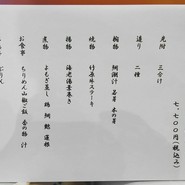 七、七〇〇円(税込み)
先附 三分け
造り 二種
椀物 鯛潮汁 若芽 木の芽
焼物 竹原牛ステーキ
揚物 海老湯葉巻き
煮物 よもぎ蒸し 鶏 鯛 鮑 蓮根
お食事 ちりめん山椒ご飯 香の物 汁